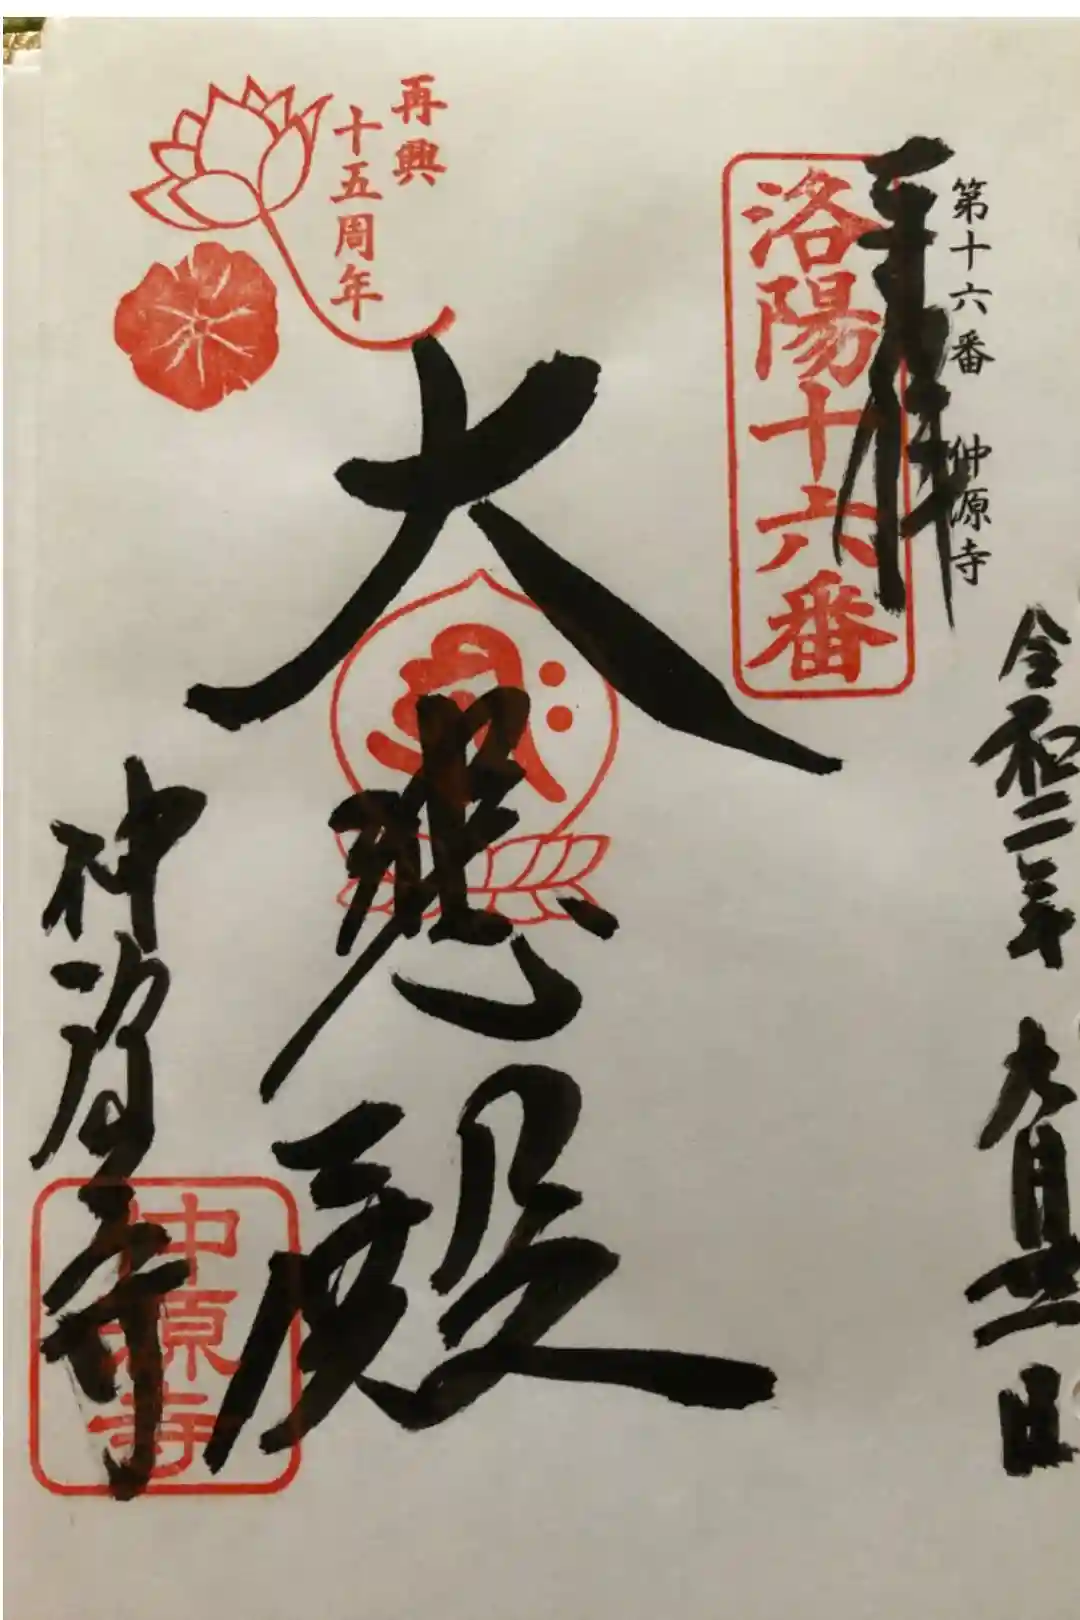 令和二年九月廿一日
第十六番 仲源寺
奉拝
洛陽十六番
再興
十五周年
大悲殿
仲源寺
仲源寺